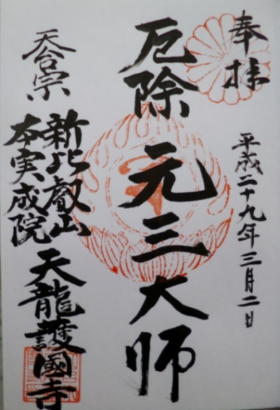 奉拝
平成二十九年三月二日
厄除 元三大師
天台宗
新比叡山
本実成院
天龍護國寺